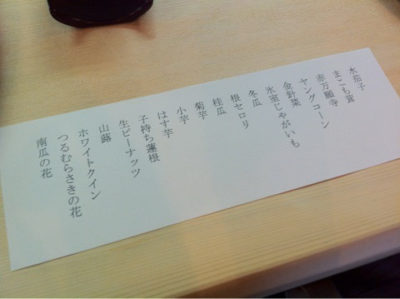 水茄子
まこも茸
赤万願寺
ヤングコーン
金針菜
氷室じゃがいも
冬瓜
根セロリ
桂瓜
菊芋
小芋
はす芋
子持ち蓮根
生ピーナッツ
山蕗
ホワイトクイン
つるむらさきの花
南瓜の花